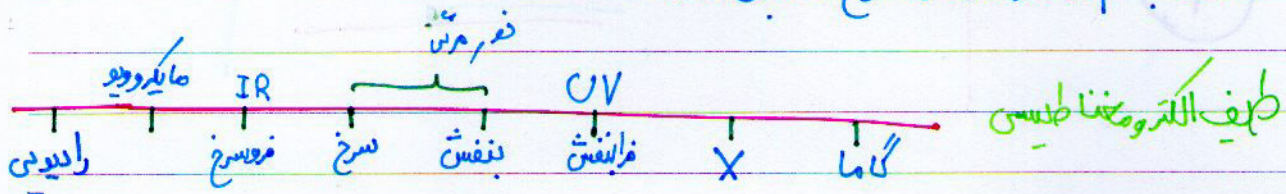 نور مرئی
مایکروویو IR UV
طیف الکترومغناطیسی
رادیویی فروسرخ سرخ بنفش فرابنفش X گاما